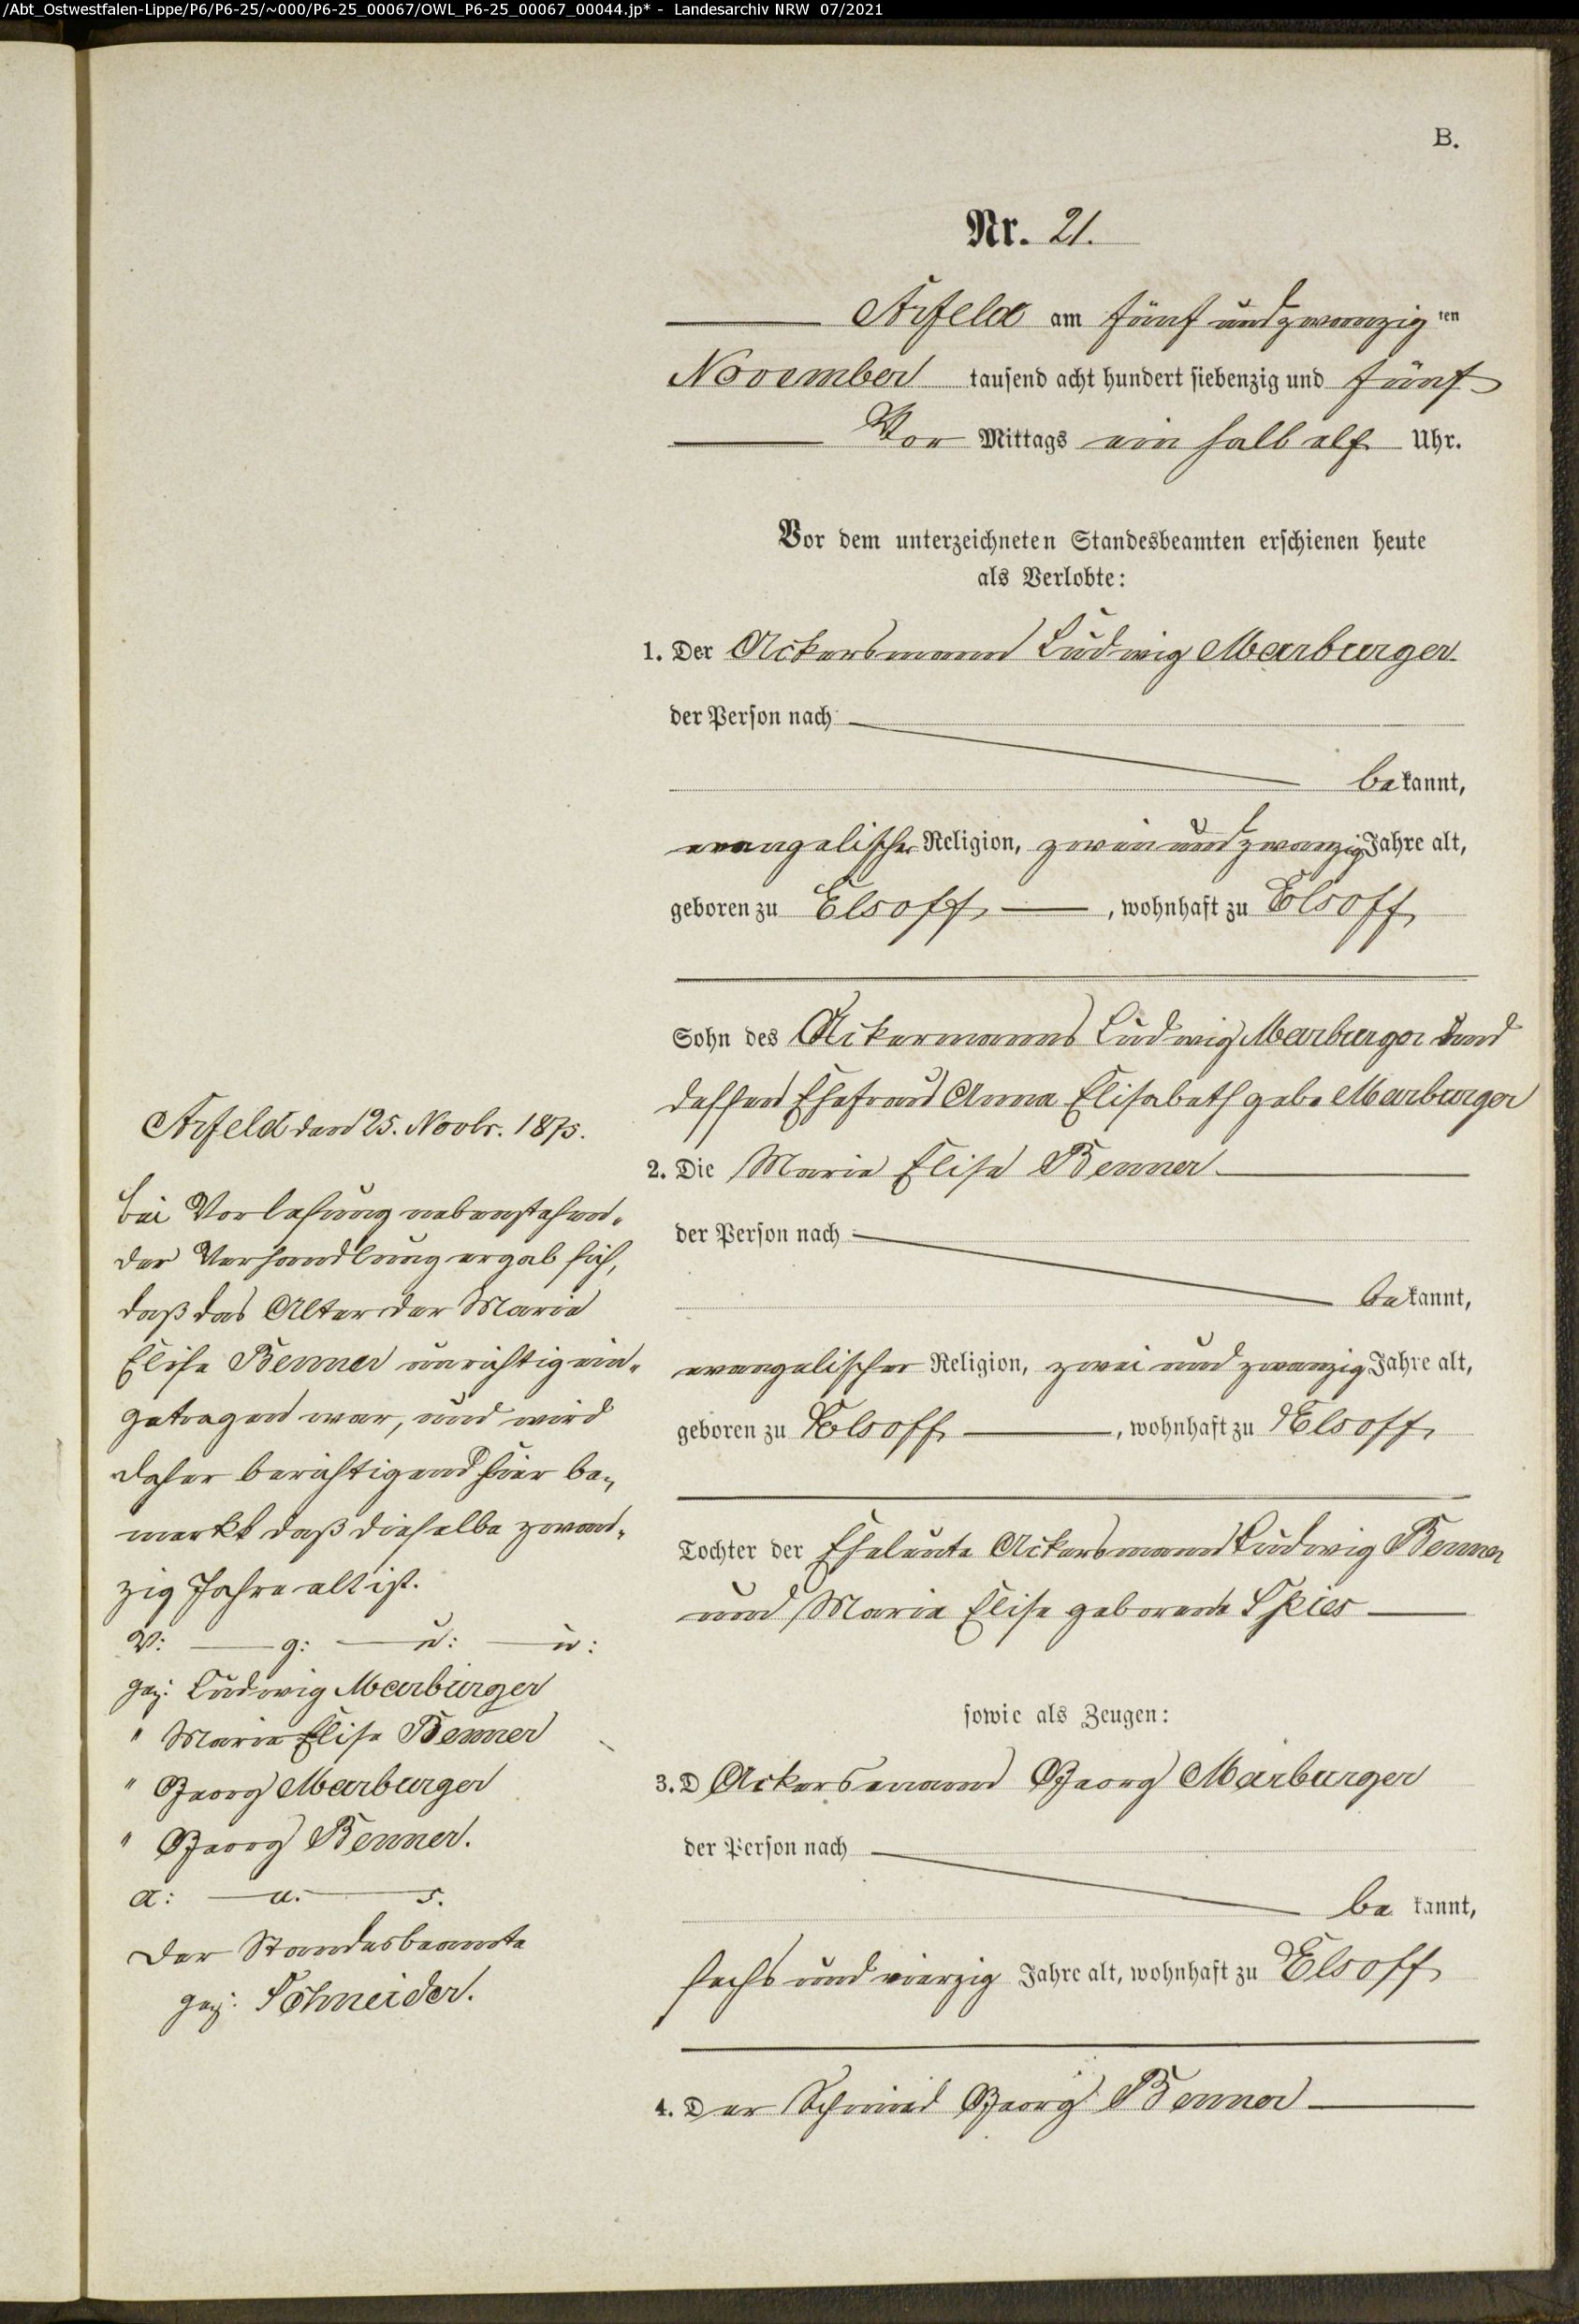 /Abt_Ostwestfalen-Lippe/P6/P6-25/~000/P6-25_00067/OWL_P6-25_00067_00044.jp* - Landesarchiv NRW 07/2021
B.
Nr. 21.
Arfeld am fünf und zwanzig ten
November tausend acht hundert siebenzig und fünf
Vor Mittags ein halb elf Uhr.
Vor dem unterzeichneten Standesbeamten erschienen heute
als Verlobte:
1. Der Ackersmann Ludwig Marburger
der Person nach
bekannt,
evangelischer Religion, zwei und zwanzig Jahre alt,
geboren zu Elsoff, wohnhaft zu Elsoff
Sohn des Ackermanns Ludwig Marburger und
dessen Ehefrau Anna Elisabeth geb. Marburger
2. Die Maria Elise Benner
der Person nach
bekannt,
evangelischer Religion, zwei und zwanzig Jahre alt,
geboren zu Elsoff, wohnhaft zu Elsoff
Tochter der Eheleute Ackersmann Ludwig Benner
und Maria Elise geborene Spies
sowie als Zeugen:
3. D Ackersmann Georg Marburger
der Person nach
be kannt,
sechs und vierzig Jahre alt, wohnhaft zu Elsoff
4. Der Schmied Georg Benner
Arfeld den 25. Novbr. 1875.
Bei Vorlesung nebenstehen-
der Verhandlung ergab sich,
daß das Alter der Maria
Elise Benner unrichtig ein-
getragen war, und wird
daher berichtigend hier be-
merkt daß dieselbe zwan-
zig Jahre alt ist.
V: g: u: u:
gez: Ludwig Marburger
" Maria Elise Benner
" Georg Marburger
" Georg Benner.
a: u. s.
Der Standesbeamte
gez: Schneider.